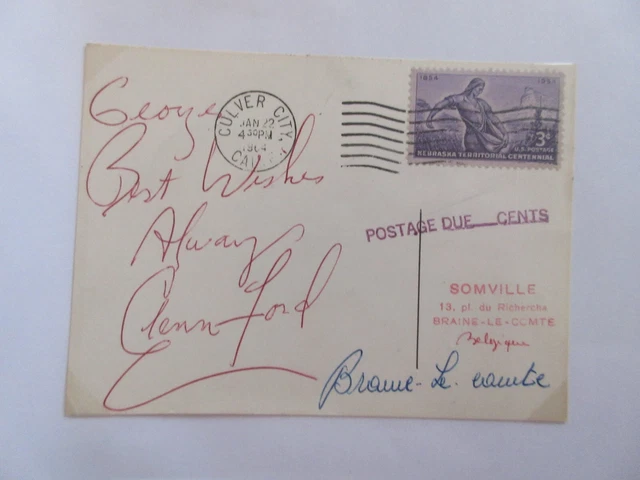 George
Best Wishes
Always
Glenn Ford
CULVER CITY,
JAN 22
4 30 PM
1964
CALIF.
1854 1954
3¢
U.S. POSTAGE
NEBRASKA TERRITORIAL CENTENNIAL
POSTAGE DUE CENTS
SOMVILLE
13, pl. du Richercha
BRAINE-LE-COMTE
Belgique
Braine-Le-comte